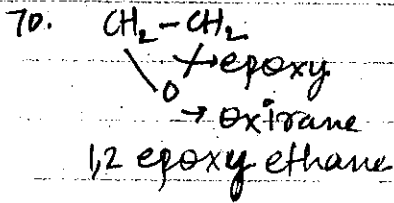 70. CH2-CH2
→epoxy
O
→ oxirane
1,2 epoxy ethane